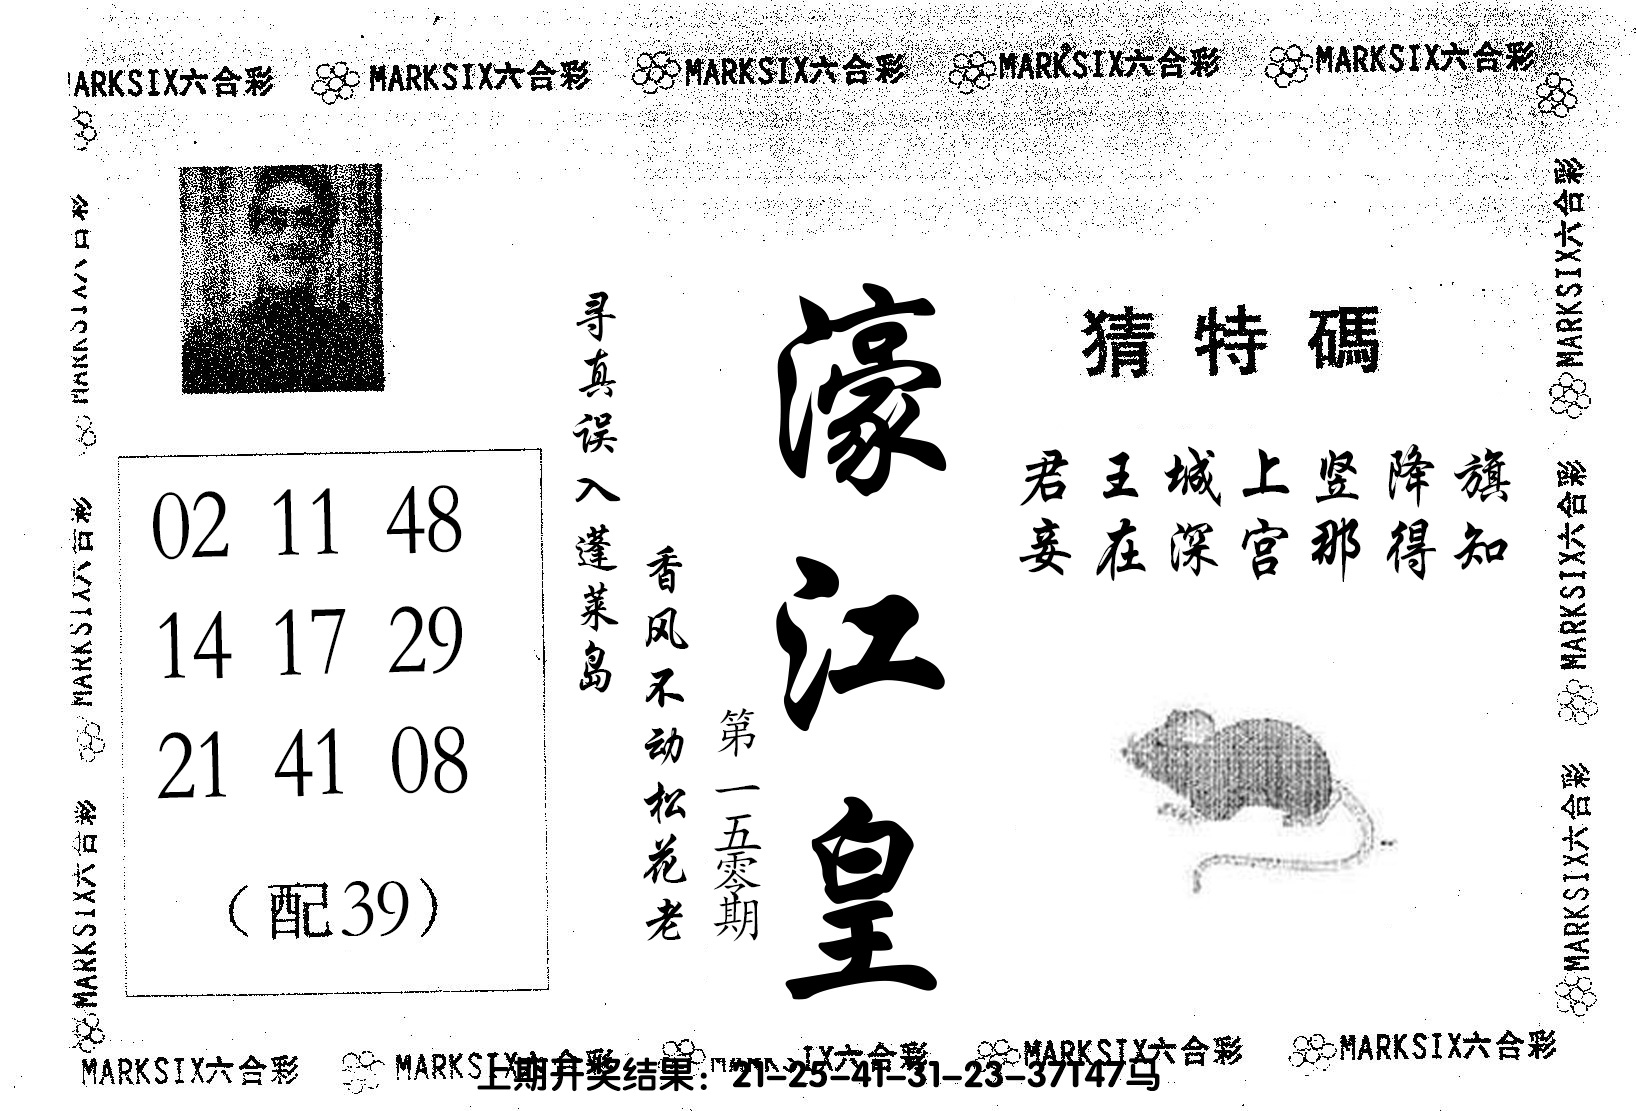 MARKSIX六合彩 MARKSIX六合彩 MARKSIX六合彩 MARKSIX六合彩 MARKSIX六合彩
猜特碼
君王城上竖降旗
妾在深宫那得知
濠江皇
第一五零期
香风不动松花老
寻真误入蓬莱岛
02 11 48
14 17 29
21 41 08
（配39）
MARKSIX六合彩
MARKSIX六合彩
MARKSIX六合彩
MARKSIX六合彩
MARKSIX六合彩
MARKSIX六合彩
MARKSIX六合彩 MARKSIX六合彩 MARKSIX六合彩 MARKSIX六合彩
上期开奖结果：21-25-41-31-23-37T47马